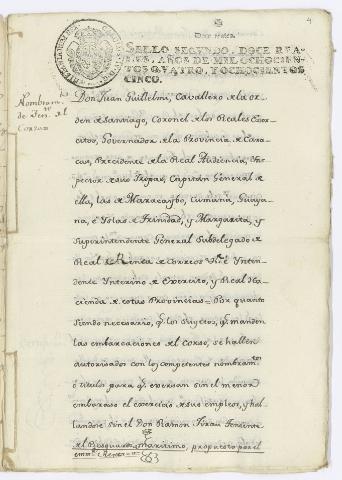 4
Doze reales.
SELLO SEGVNDO, DOCE REA-
LES, AÑOS DE MIL OCHOCIEN-
TOS QVATRO, Y OCHOCIENTOS
CINCO.
Nombram.to
de Ten.te al
Corzo
Don Juan Guillelmi, Cavallero de la or-
den de Santiago, Coronel de los Reales Exer-
citos, Governador de la Provincia de Cara-
cas, Presidente de la Real Audiencia, Yns-
pector de sus Tropas, Capitan General de
ella, las de Maracaybo, Cumaná, Guaya-
na, é Yslas de Trinidad, y Margarita, y
Superintendente General Subdelegado de
Real de Renta de Correos é Ynten-
dente Ynterino de Exercito, y Real Ha-
cienda de estas Provincias = Por quanto
siendo necesario, q.e los sugetos, q.e manden
las embarcaciones al corso, se hallen
autorizados con los competentes nombram.tos
ó titulos para q.e exersan sin el menor
embaraso el exercicio de sus empleos, y hal-
landose sin el Don Ramon Teniente
del Resguardo maritimo, propuesto por el